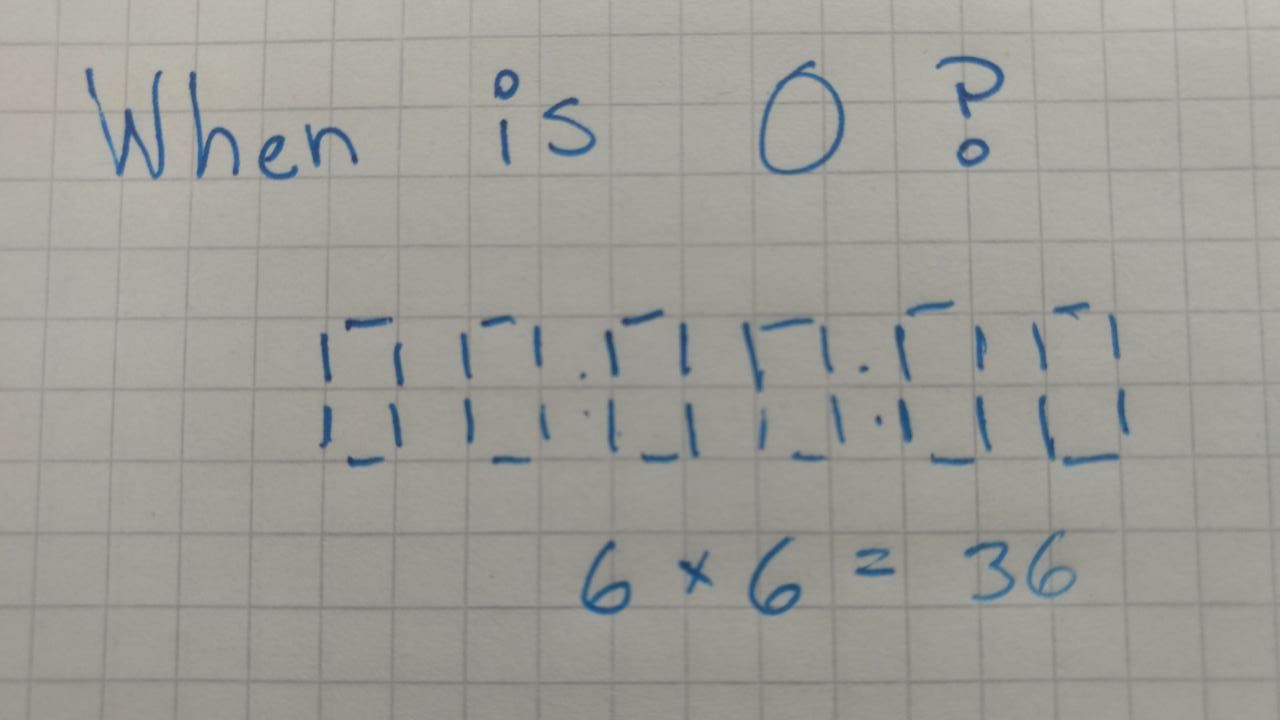 When is 0 ?
00:00:00
6 × 6 = 36